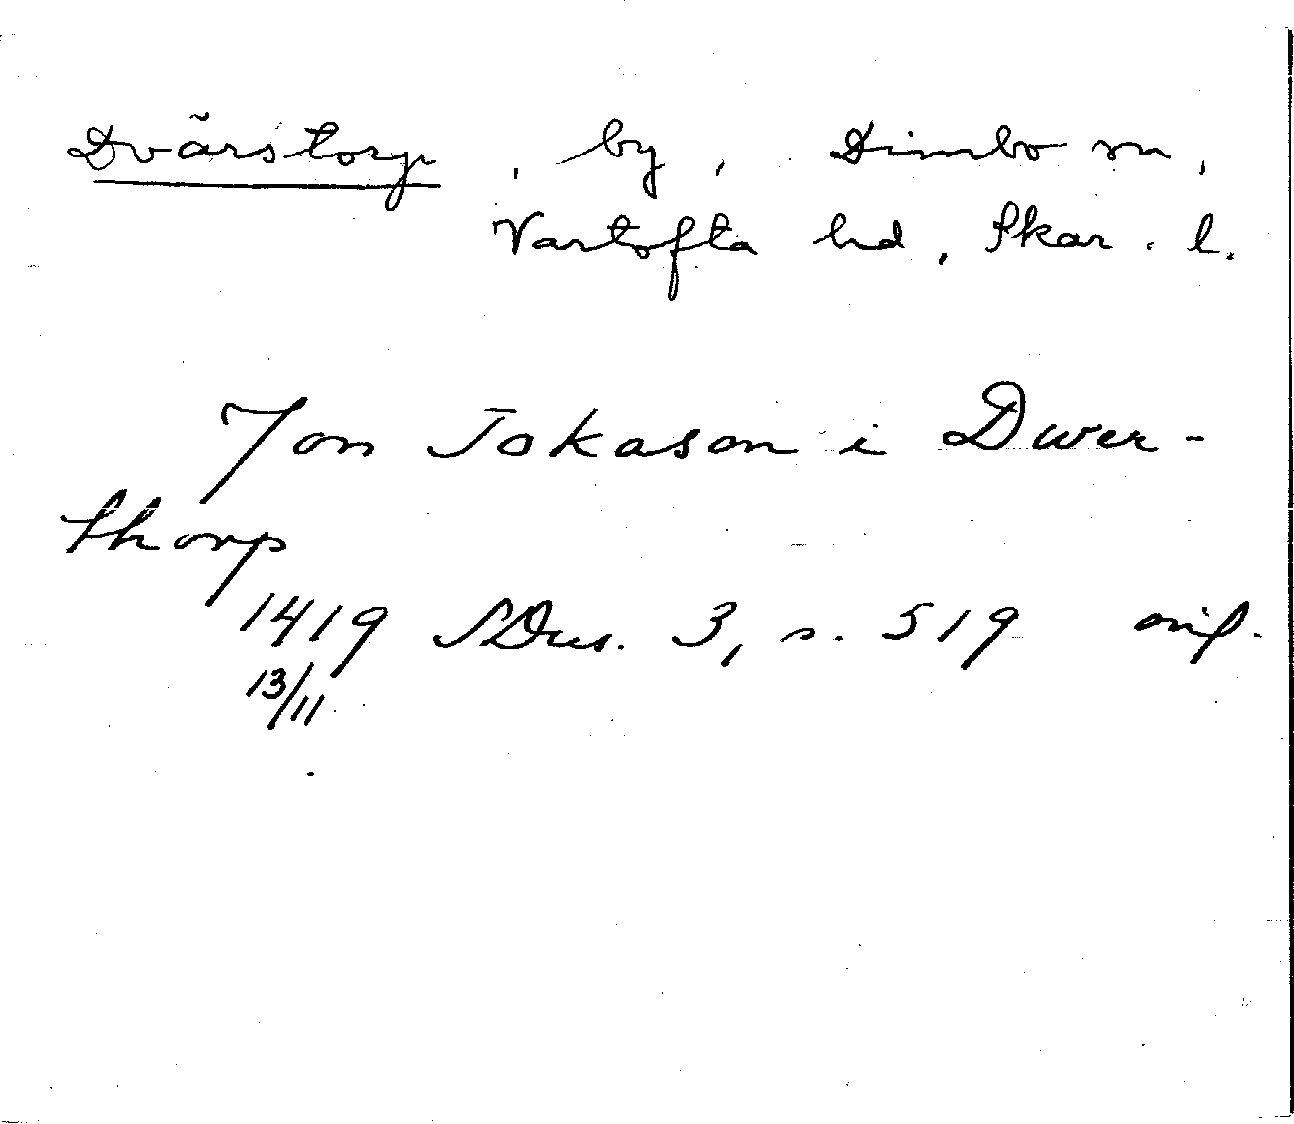 Dvärstorp, by, Dimbo sn,
Vartofta hd, Skar. l.
Jon Jokason i Dwer-
thorp
1419 SDns. 3, s. 519 orig.
13/11